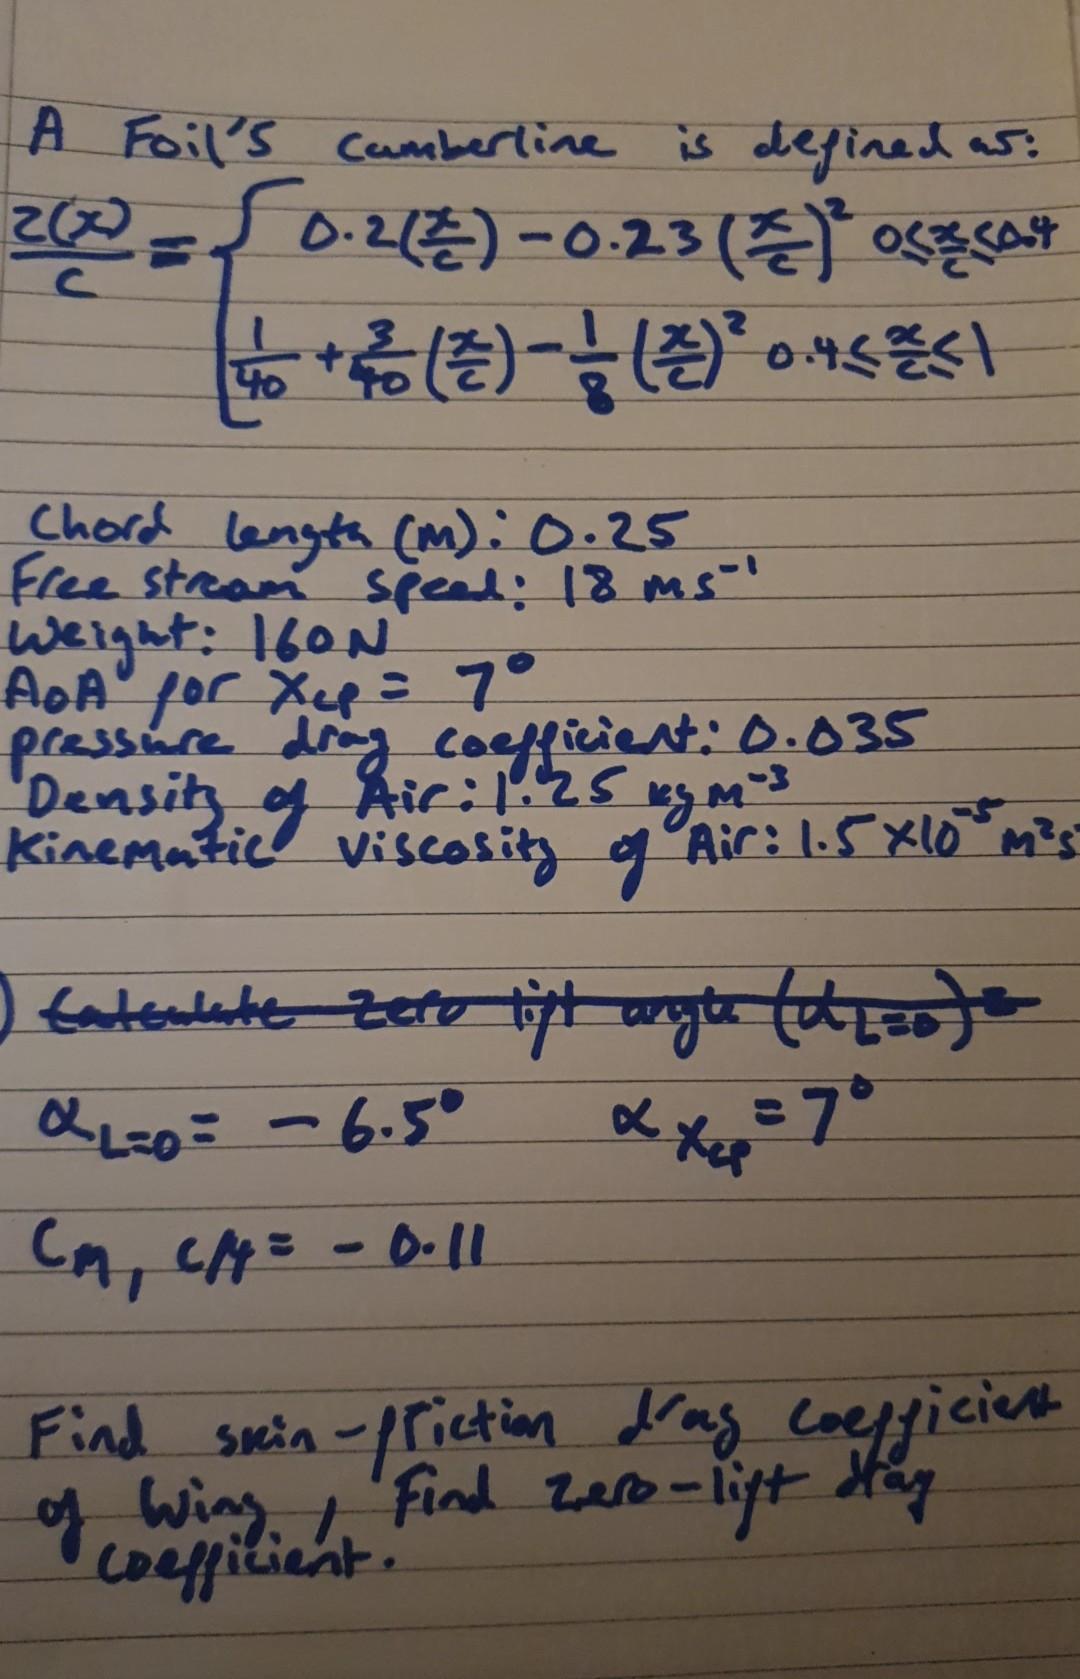 A Foil's camberline is defined as:
z(x)/c = { 0.2(x/c) - 0.23(x/c)² 0≤x/c≤0.4
1/40 + 3/40(x/c) - 1/8(x/c)² 0.4≤x/c≤1
Chord length (m): 0.25
Free stream speed: 18 ms⁻¹
Weight: 160N
AoA for xcp = 7°
pressure drag coefficient: 0.035
Density of Air: 1.25 kgm⁻³
Kinematic viscosity of Air: 1.5 x10⁻⁵ m²s
) Calculate zero lift angle (αL=0)=
αL=0 = - 6.5° αxcp = 7°
CM, c/4 = - 0.11
Find skin-friction drag coefficient
of wing, find zero-lift drag
coefficient.